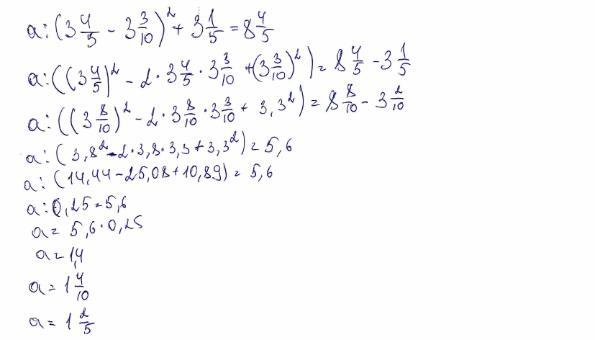 a:(3 4/5 - 3 3/10)² + 3 1/5 = 8 4/5
a:((3 4/5)² - 2·3 4/5·3 3/10 + (3 3/10)²) = 8 4/5 - 3 1/5
a:((3 8/10)² - 2·3 8/10·3 3/10 + 3,3²) = 8 8/10 - 3 2/10
a:(3,8² - 2·3,8·3,3 + 3,3²) = 5,6
a:(14,44 - 25,08 + 10,89) = 5,6
a:0,25 = 5,6
a = 5,6·0,25
a = 1,4
a = 1 4/10
a = 1 2/5